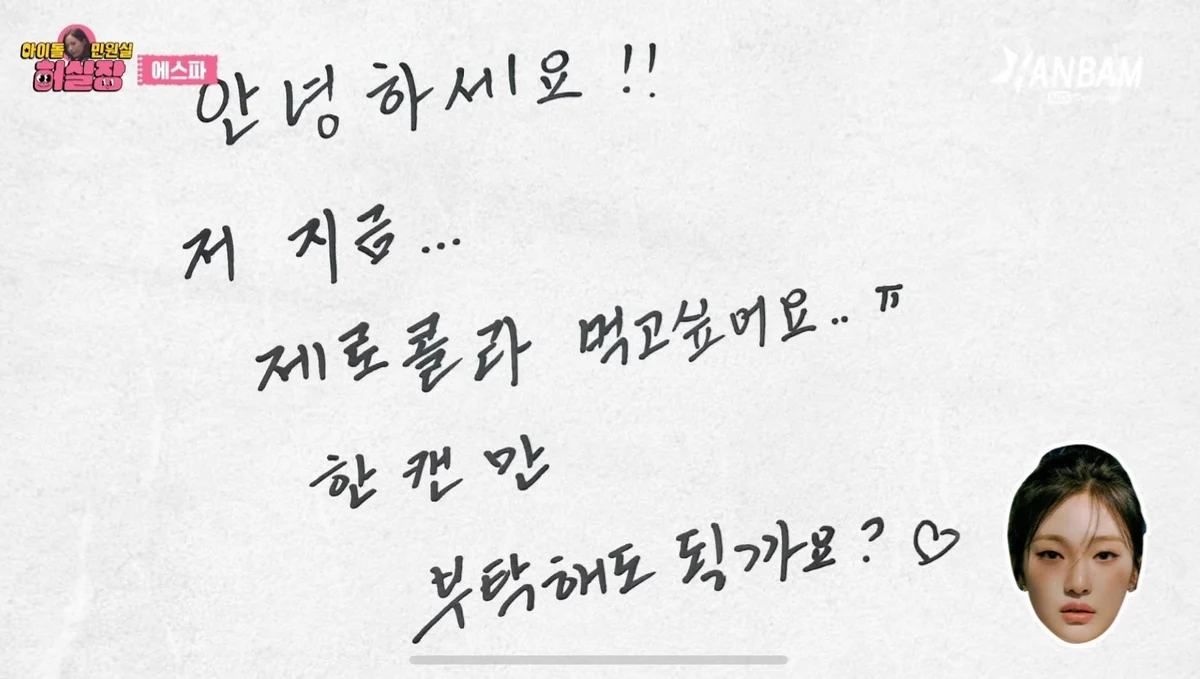 아이돌 민원실
허실장
에스파
HANBAM
안녕하세요!!
저 지금...
제로콜라 먹고싶어요.. ㅠ
한 캔만
부탁해도 될까요? ♡